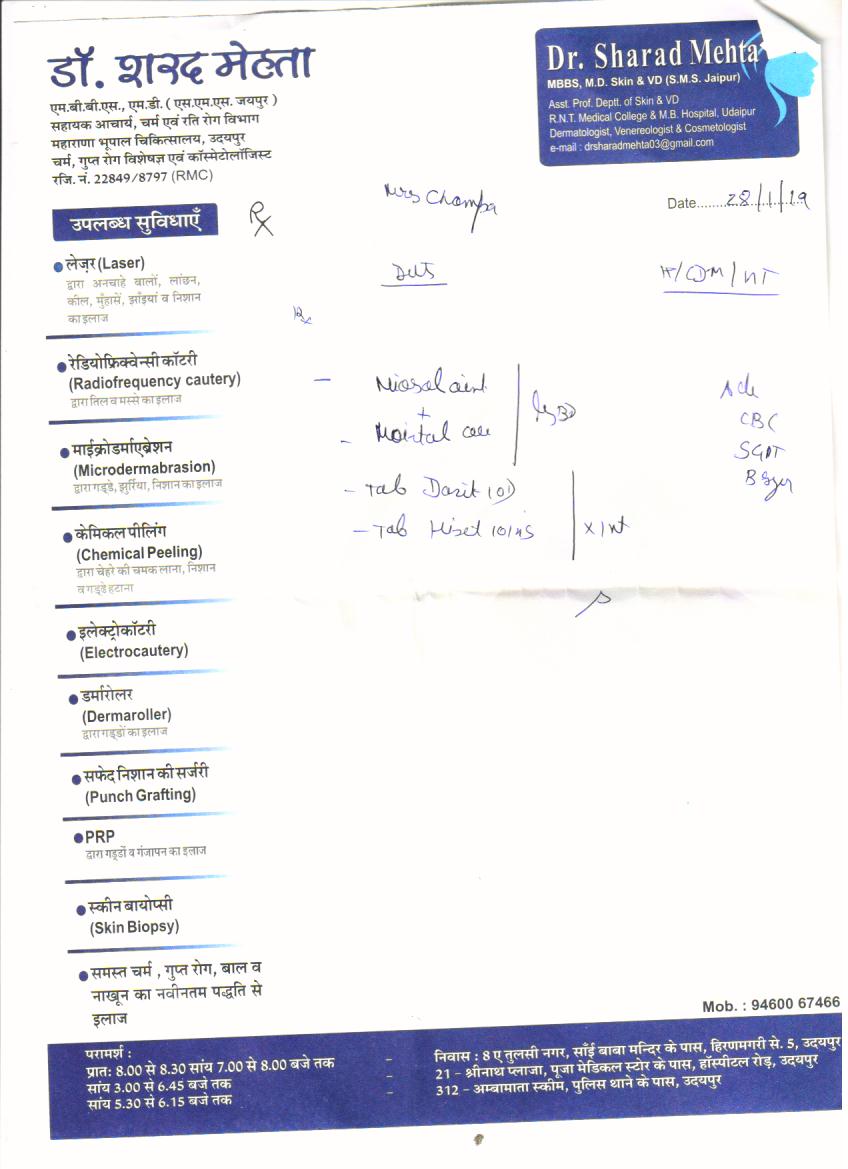 डॉ. शरद मेहता
एम.बी.बी.एस., एम.डी. ( एस.एम.एस. जयपुर )
सहायक आचार्य, चर्म एवं रति रोग विभाग
महाराणा भूपाल चिकित्सालय, उदयपुर
चर्म, गुप्त रोग विशेषज्ञ एवं कॉस्मेटोलॉजिस्ट
रजि. नं. 22849/8797 (RMC)
Dr. Sharad Mehta
MBBS, M.D. Skin & VD (S.M.S. Jaipur)
Asst. Prof. Deptt. of Skin & VD
R.N.T. Medical College & M.B. Hospital, Udaipur
Dermatologist, Venereologist & Cosmetologist
e-mail : drsharadmehta03@gmail.com
Mrs Champa
Date........28/1/19
उपलब्ध सुविधाएँ
Rx
• लेज़र (Laser)
द्वारा अनचाहे बालों, लांछन,
कील, मुँहासें, झाँइयां व निशान
का इलाज
Rx
• रेडियोफ्रिक्वेन्सी कॉटरी
(Radiofrequency cautery)
द्वारा तिल व मस्से का इलाज
+
CBC
SGPT
• माईक्रोडर्माएब्रेशन
(Microdermabrasion)
द्वारा गड्डे, झुर्रिया, निशान का इलाज
- Tab
- Tab
• केमिकल पीलिंग
(Chemical Peeling)
द्वारा चेहरे की चमक लाना, निशान
व गड्डे हटाना
• इलेक्ट्रोकॉटरी
(Electrocautery)
• डर्मारोलर
(Dermaroller)
द्वारा गड्डों का इलाज
• सफेद निशान की सर्जरी
(Punch Grafting)
• PRP
द्वारा गड्डों व गंजापन का इलाज
• स्कीन बायोप्सी
(Skin Biopsy)
• समस्त चर्म , गुप्त रोग, बाल व
नाखून का नवीनतम पद्धति से
इलाज
Mob. : 94600 67466
परामर्श :
प्रात: 8.00 से 8.30 सांय 7.00 से 8.00 बजे तक – निवास : 8 ए तुलसी नगर, साँई बाबा मन्दिर के पास, हिरणमगरी से. 5, उदयपुर
सांय 3.00 से 6.45 बजे तक – 21 – श्रीनाथ प्लाजा, पूजा मेडिकल स्टोर के पास, हॉस्पीटल रोड़, उदयपुर
सांय 5.30 से 6.15 बजे तक – 312 – अम्बामाता स्कीम, पुलिस थाने के पास, उदयपुर